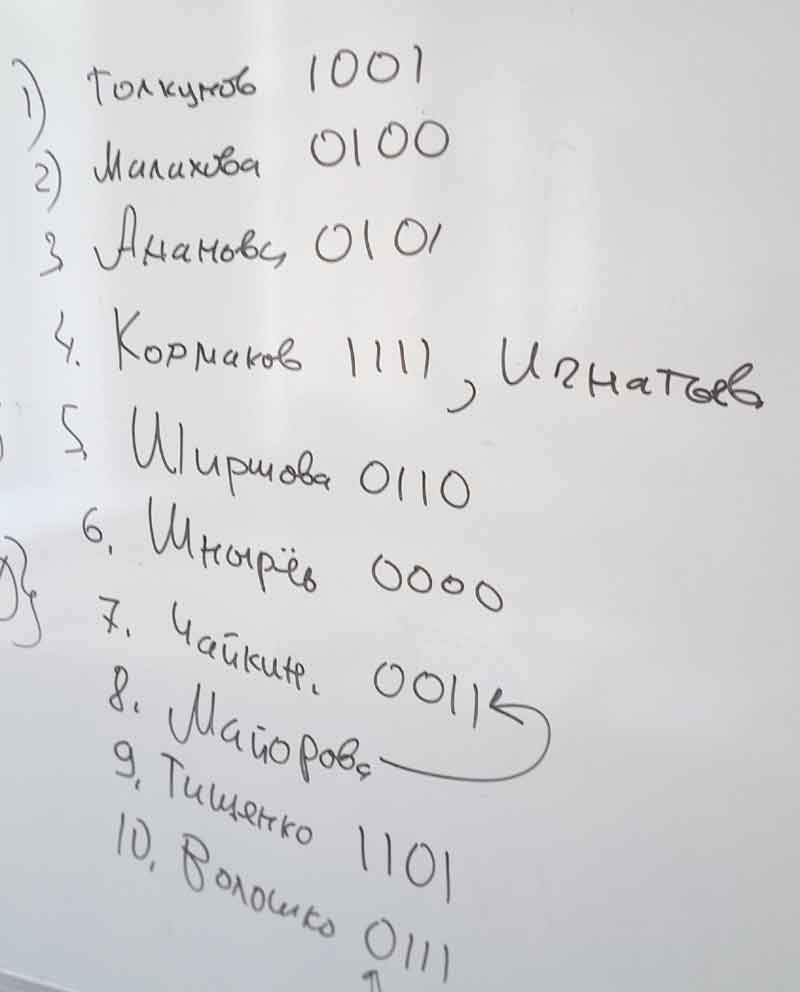 1) Толкунов 1001
2) Малахова 0100
3 Ананова 0101
4. Кормаков 1111, Игнатьев
5. Ширшова 0110
6. Шнырёв 0000
7. Чайкин. 0011
8. Майорова
9. Тищенко 1101
10. Волошко 0111